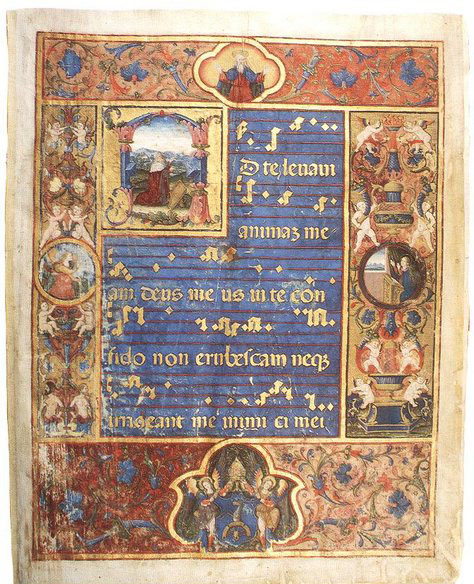 AD te leuaui
animaz me
am deus me us in te con
fido non erubescam neqz
irrideant me inimi ci mei